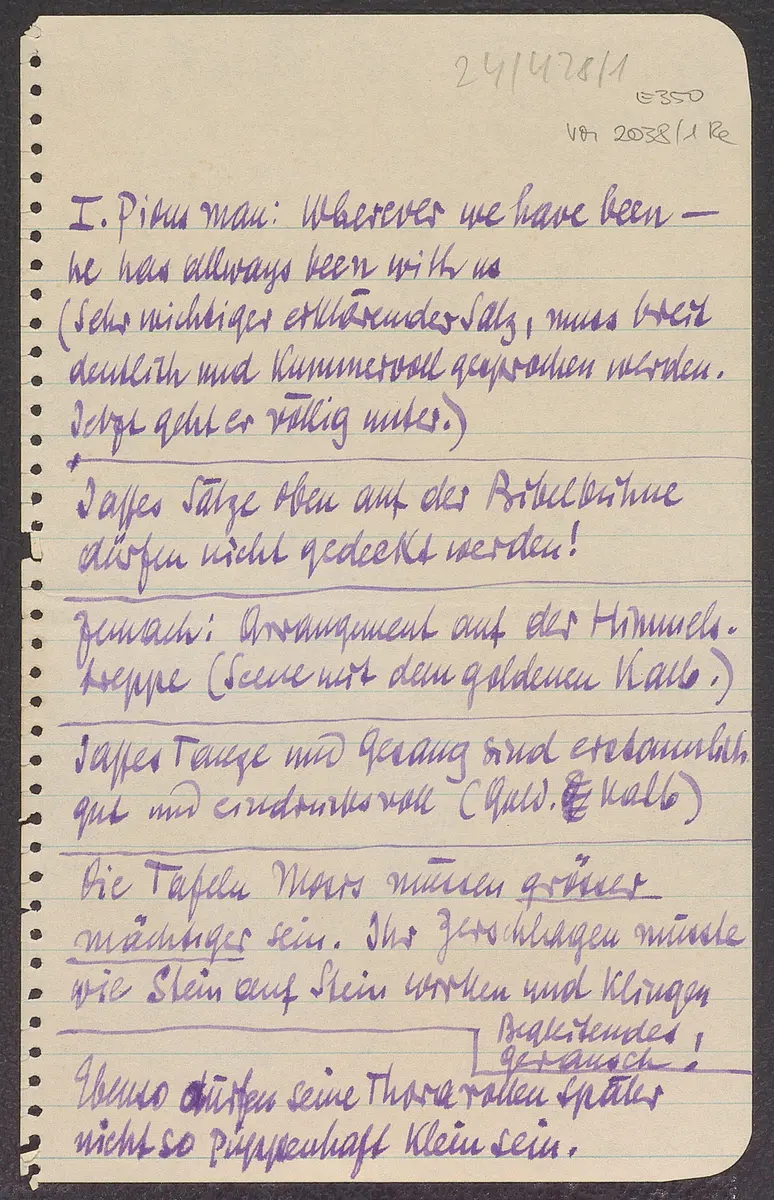 24/428/1
E350
Vor 2038/1 Re
I. Pious man: Wherever we have been —
he has allways been with us
(Sehr wichtiger erklärender Satz, muss breit
deutlich und Kummervoll gesprochen werden.
Jetzt geht er völlig unter.)
Jaffes Sätze oben auf der Bibelbühne
dürfen nicht gedeckt werden!
Zemach: Arrangement auf der Himmels-
treppe (Scene mit dem goldenen Kalb.)
Jaffes Tanze und Gesang sind erstaunlich
gut und eindrucksvoll (Gold. Kalb)
Die Tafeln Moses müssen grösser
mächtiger sein. Ihr Zerschlagen müsste
wie Stein auf Stein wirken und Klingen
Begleitendes
geräusch!
Ebenso dürfen seine Thorarollen später
nicht so püppenhaft Klein sein.